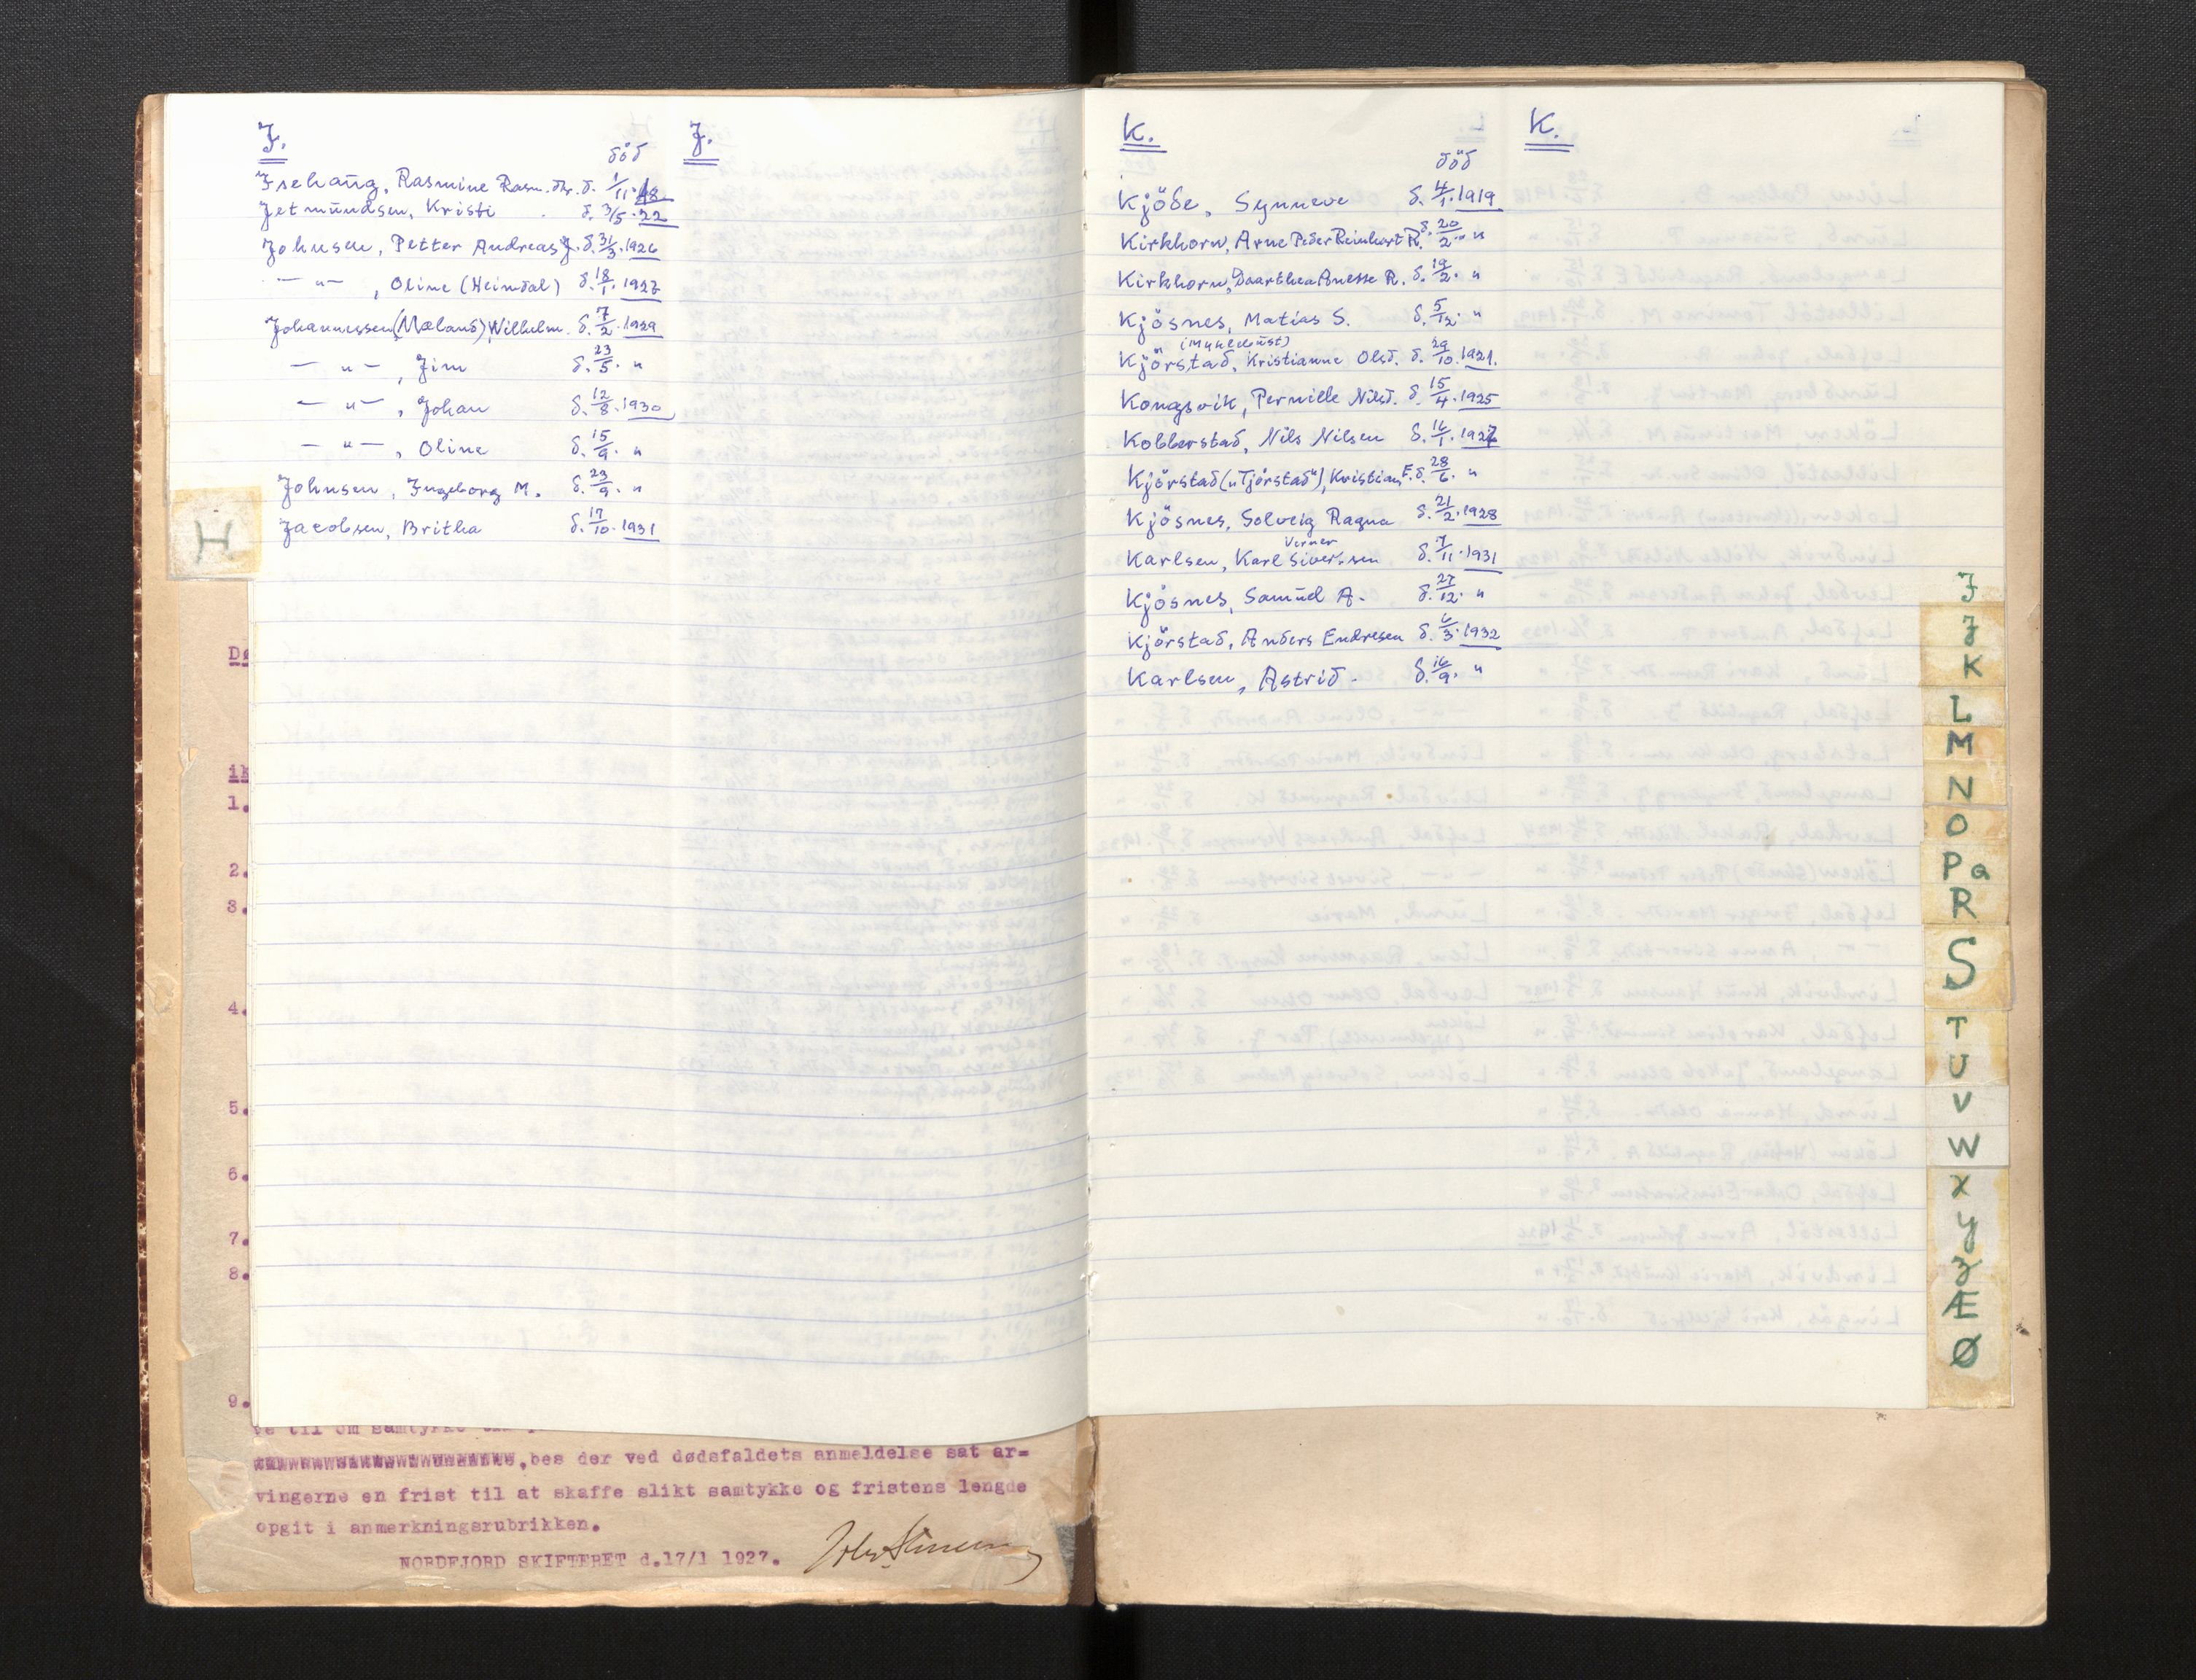 J.
död
J.
Isehaŭg, Rasmine Rasm. dtr. d. 1/11.18
Jetmŭndsen, Kristi d. 3/5.22
Johnsen, Petter Andreas J. d. 31/3.1926
— " — , Oline (Heimdal) d. 18/1.1927
Johannessen (Mæland), Wilhelm. d. 7/2.1929
— " — , Jim d. 23/5. "
— " — , Johan d. 12/8.1930
— " — , Oline d. 15/9. "
Johnsen, Ingeborg M. d. 23/9. "
Jacobsen, Britha d. 17/10.1931
H
Dø
1.
2.
3.
4.
5.
6.
7.
8.
9.
te til om samtykke
bes der ved dødsfaldets anmeldelse sat ar=
vingerne en frist til at skaffe slikt samtykke og fristens lengde
opgit i anmerkningsrubrikken.
NORDFJORD SKIFTERET d.17/1 1927.
K.
död
K.
Kjöde, Synneve d. 4/1.1919
Kirkhorn, Arne Peder Reinhart R. d. 20/2. "
Kirkhorn, Daarthea Anesse R. d. 19/2. "
Kjösnes, Matias S. d. 5/12. "
(Myklebŭst)
Kjörstad, Kristianne Olsd. d. 29/10.1921.
Kongsvik, Pernille Nilsd. d. 15/4.1925
Kobberstad, Nils Nilsen d. 16/1.1927
Kjörstad („Tjörstad"), Kristian F. d. 28/6. "
Kjösnes, Solveig Ragna d. 21/2.1928
Verner
Karlsen, Karl Sivertsen d. 7/11.1931
Kjösnes, Samŭel A. d. 27/12. "
Kjörstad, Anders Endresen d. 6/3.1932
Karlsen, Astrid. d. 16/9. "
I
J
K
L
M
N
O
P Q
R
S
T
U
V
W
X
Y
Z
Æ
Ø